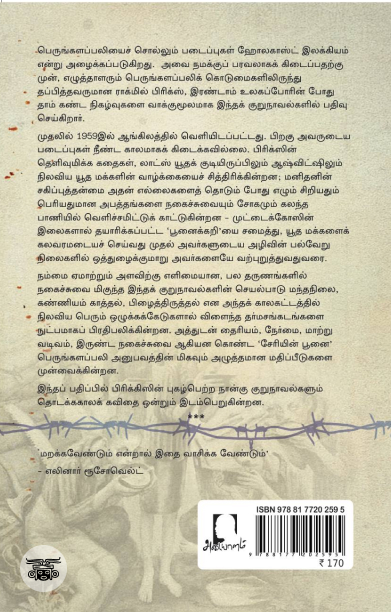 பெருங்களப்பலியைச் சொல்லும் படைப்புகள் ஹோலகாஸ்ட் இலக்கியம்
என்று அழைக்கப்படுகிறது. அவை நமக்குப் பரவலாகக் கிடைப்பதற்கு
முன், எழுத்தாளரும் பெருங்களப்பலிக் கொடுமைகளிலிருந்து
தப்பித்தவருமான ராக்மில் பிரிக்ஸ், இரண்டாம் உலகப்போரின் போது
தாம் கண்ட நிகழ்வுகளை வாக்குமூலமாக இந்தக் குறுநாவல்களில் பதிவு
செய்கிறார்.
முதலில் 1959இல் ஆங்கிலத்தில் வெளியிடப்பட்டது. பிறகு அவருடைய
படைப்புகள் நீண்ட காலமாகக் கிடைக்கவில்லை. பிரிக்ஸின்
தெளிவுமிக்க கதைகள், லாட்ஸ் யூதக் குடியிருப்பிலும் ஆஷ்விட்ஷிலும்
நிலவிய யூத மக்களின் வாழ்க்கையைச் சித்திரிக்கின்றன; மனிதனின்
சகிப்புத்தன்மை அதன் எல்லைகளைத் தொடும் போது எழும் சிறியதும்
பெரியதுமான அபத்தங்களை நகைச்சுவையும் சோகமும் கலந்த
பாணியில் வெளிச்சமிட்டுக் காட்டுகின்றன - முட்டைக்கோஸின்
இலைகளால் தயாரிக்கப்பட்ட 'பூனைக்கறி'யை சமைத்து, யூத மக்களைக்
கலவரமடையச் செய்வது முதல் அவர்களுடைய அழிவின் பல்வேறு
நிலைகளில் ஒத்துழைக்குமாறு அவர்களையே வற்புறுத்துவதுவரை.
நம்மை ஏமாற்றும் அளவிற்கு எளிமையான, பல தருணங்களில்
நகைச்சுவை மிகுந்த இந்தக் குறுநாவல்களின் செயல்பாடு மந்தநிலை,
கண்ணியம் காத்தல், பிழைத்திருத்தல் என அந்தக் காலகட்டத்தில்
நிலவிய பெரும் ஒழுக்கக்கேடுகளால் விளைந்த தர்மசங்கடங்களை
நுட்பமாகப் பிரதிபலிக்கின்றன. அத்துடன் தைரியம், நேர்மை, மாற்று
வடிவம், இருண்ட நகைச்சுவை ஆகியன கொண்ட 'சேரியின் பூனை'
பெருங்களப்பலி அனுபவத்தின் மிகவும் அழுத்தமான மதிப்பீடுகளை
முன்வைக்கின்றன.
இந்தப் பதிப்பில் பிரிக்கிஸின் புகழ்பெற்ற நான்கு குறுநாவல்களும்
தொடக்ககாலக் கவிதை ஒன்றும் இடம்பெறுகின்றன.
***
'மறக்கவேண்டும் என்றால் இதை வாசிக்க வேண்டும்'
- எலினார் ரூசோவெல்ட்
ISBN 978 81 7720 259 5
அடையாளம்
9 788177 202595
₹ 170